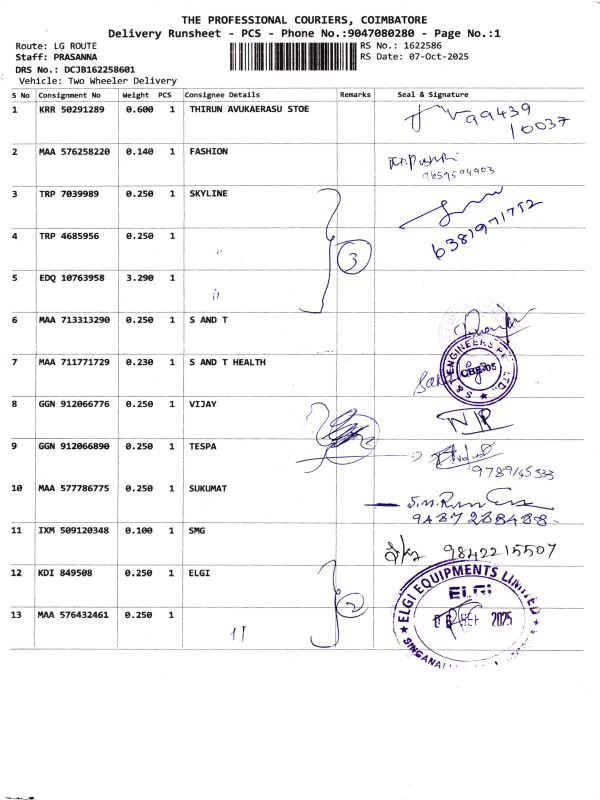 THE PROFESSIONAL COURIERS, COIMBATORE
Delivery Runsheet - PCS - Phone No.:9047080280 - Page No.:1
Route: LG ROUTE
RS No.: 1622586
Staff: PRASANNA
RS Date: 07-Oct-2025
DRS No.: DCJB162258601
Vehicle: Two Wheeler Delivery
S No Consignment No Weight PCS Consignee Details Remarks Seal & Signature
1 KRR 50291289 0.600 1 THIRUN AVUKAERASU STOE
99439
10037
2 MAA 576258220 0.140 1 FASHION
9659594903
3 TRP 7039989 0.250 1 SKYLINE
6381971752
4 TRP 4685956 0.250 1 "
3
5 EDQ 10763958 3.290 1 "
6 MAA 713313290 0.250 1 S AND T
7 MAA 711771729 0.230 1 S AND T HEALTH
S & T ENGINEERS PVT. LTD.
CBE-05
8 GGN 912066776 0.250 1 VIJAY
9 GGN 912066890 0.250 1 TESPA
9789145333
10 MAA 577786775 0.250 1 SUKUMAT
9487288488
11 IXM 509120348 0.100 1 SMG
9842215507
12 KDI 849508 0.250 1 ELGI
2
ELGI EQUIPMENTS LIMITED
ELGi
SEP 2025
13 MAA 576432461 0.250 1 "